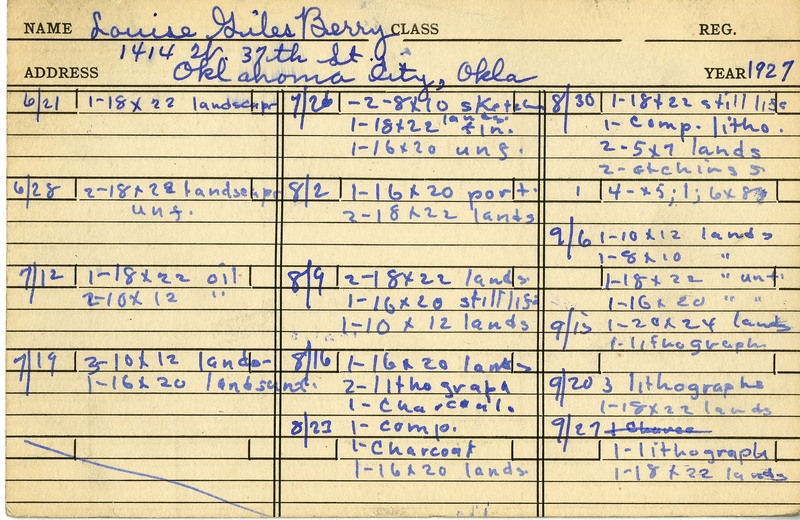 NAME Louise Giles Berry CLASS REG.
1414 W. 37th St.
ADDRESS Oklahoma City, Okla YEAR 1927
6/21 1-18x22 landscape
6/28 2-18x22 landscape
unf.
7/12 1-18x22 oil
2-10x12 "
7/19 2-10x12 lands-
1-16x20 lands unf.
7/26 -2-8x10 sketch
1-18x22 lands fin.
1-16x20 unf.
8/2 1-16x20 port.
2-18x22 lands
8/9 2-18x22 lands
1-16x20 still life
1-10x12 lands
8/16 1-16x20 lands
2-lithograph
1-Charcoal.
8/23 1-comp.
1-Charcoal
1-16x20 lands
8/30 1-18x22 still life
1-Comp. litho.
2-5x7 lands
2-etchings
1 4-x5; 1; 6x8
9/6 1-10x12 lands
1-8x10 "
1-18x22 " unf.
1-16x20 " "
9/13 1-20x24 lands
1-lithograph
9/20 3 lithographs
1-18x22 lands
9/27
1-lithograph
1-18x22 lands